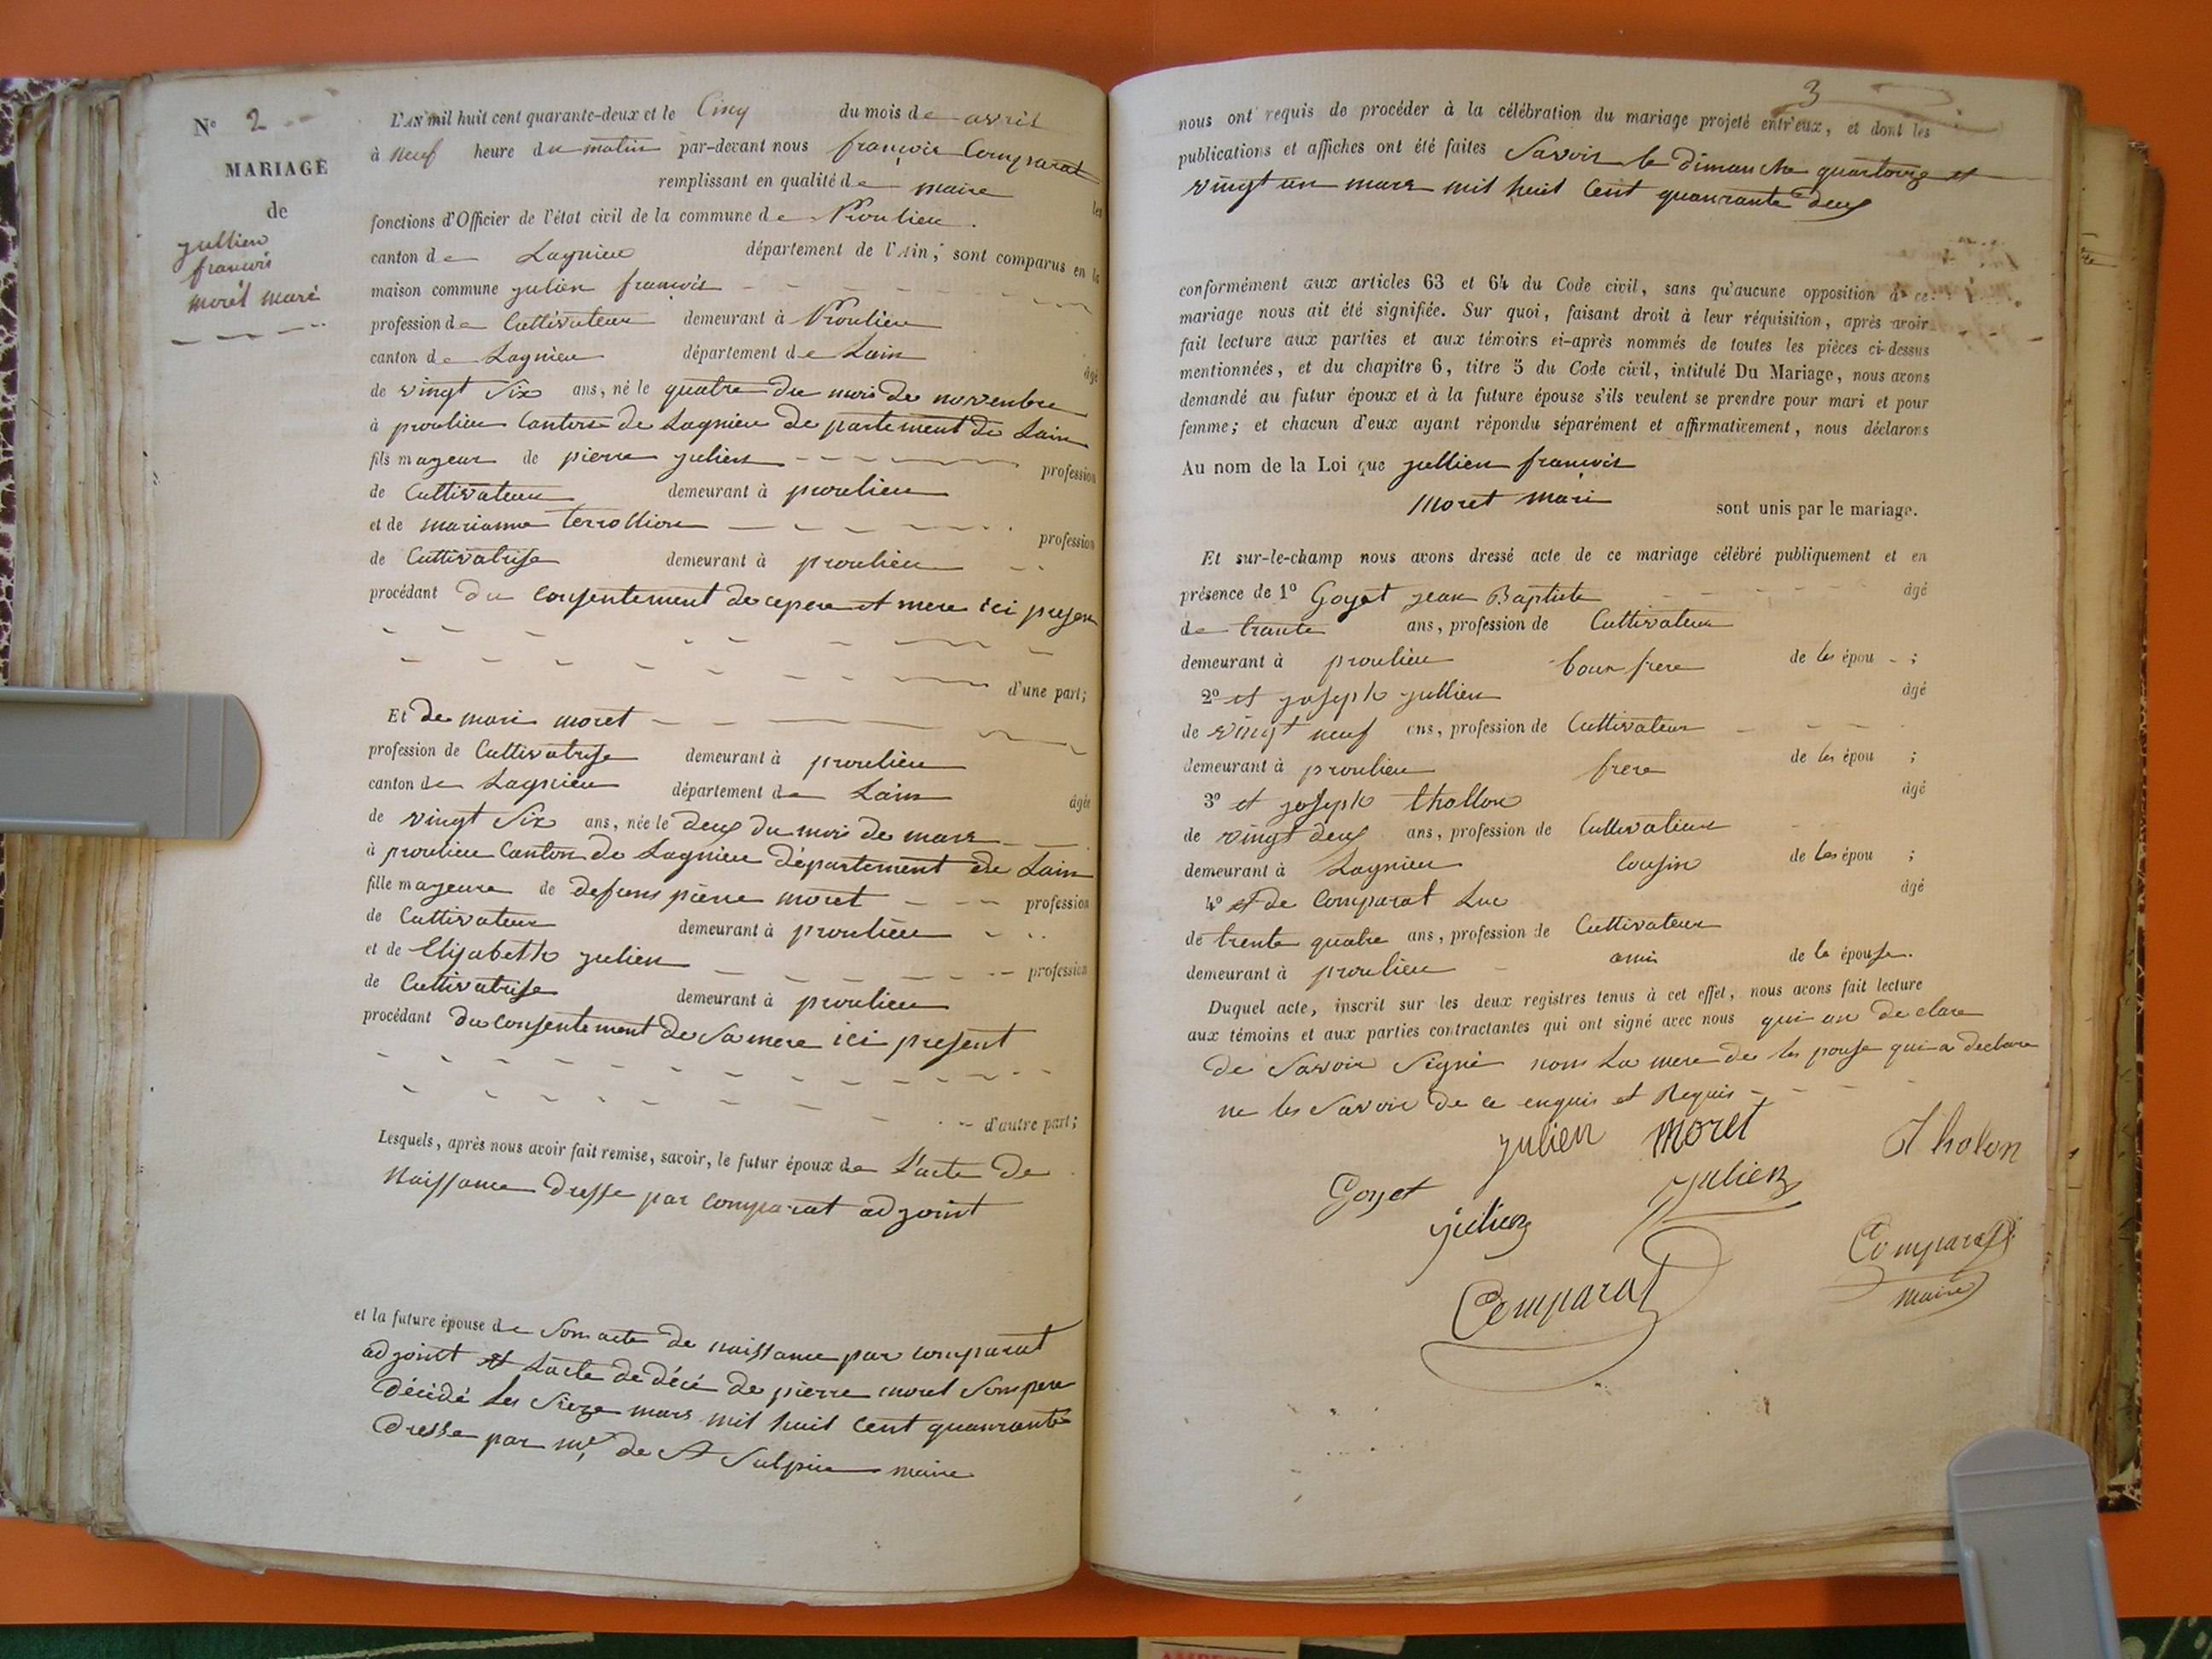 N° 2
MARIAGE
de
jullien
francois
morèt mari
L'AN mil huit cent quarante-deux et le Cinq du mois de avril
à neuf heure du matin par-devant nous francois Comparat
remplissant en qualité de maire les
fonctions d'Officier de l'état civil de la commune de Proulieu
canton de Lagnieu département de l'Ain; sont comparus en la
maison commune julien francois
profession de Cultivateur demeurant à Proulieu
canton de Lagnieu département de Lain
âgé
de vingt Six ans, né le quatre du mois de novenbre
à proulieu Canton de Lagnieu departement de Lain
fils mageur de pierre julien profession
de Cultivateur demeurant à proulieu
et de marianne terrollion profession
de Cultivatrise demeurant à proulieu
procédant du Consentement de ce pere et mere ici presen
d'une part;
Et de mari moret
profession de Cultivatrise demeurant à proulieu
canton de Lagnieu département de Lain âgée
de vingt Six ans, née le deux du mois de mars
à proulieu Canton de Lagnieu département de Lain
fille mageure de defuns pierre moret profession
de Cultivateur demeurant à proulieu
et de Elisabeth julien profession
de Cultivatrise demeurant à proulieu
procédant du consentement de Sa mere ici present
d'autre part;
Lesquels, après nous avoir fait remise, savoir, le futur époux de L'acte de
Naissance dresse par Comparat adjoint
et la future épouse de Son acte de naissance par comparat
adjoint et Lacte de décé de pierre moret Son pere
décidé les Sieze mars mil huit Cent quanrante
dresse par mr de St Sulpice maire
3
nous ont requis de procéder à la célébration du mariage projeté entr'eux, et dont les
publications et affiches ont été faites Savoir le dimanche quartorze et
vingt un mars mil huit Cent quanrante deux
conformément aux articles 63 et 64 du Code civil, sans qu'aucune opposition à ce
mariage nous ait été signifiée. Sur quoi, faisant droit à leur réquisition, après avoir
fait lecture aux parties et aux témoins ci-après nommés de toutes les pièces ci-dessus
mentionnées, et du chapitre 6, titre 5 du Code civil, intitulé Du Mariage, nous avons
demandé au futur époux et à la future épouse s'ils veulent se prendre pour mari et pour
femme; et chacun d'eux ayant répondu séparément et affirmativement, nous déclarons
Au nom de la Loi que jullien francois
Moret mari sont unis par le mariage.
Et sur-le-champ nous avons dressé acte de ce mariage célébré publiquement et en
présence de 1° Goyet jean Baptiste âgé
de trante ans, profession de Cultivateur
demeurant à proulieu beau frere de les épou ;
2° et joseph jullien âgé
de vingt neuf ans, profession de Cultivateur
demeurant à proulieu frere de les épou ;
3° et joseph thollon âgé
de vingt deux ans, profession de Cultivateur
demeurant à Lagnieu Cousin de les épou ;
4° et de Comparat Luc âgé
de trente quatre ans, profession de Cultivateur
demeurant à proulieu ami de la épouse.
Duquel acte, inscrit sur les deux registres tenus à cet effet, nous avons fait lecture
aux témoins et aux parties contractantes qui ont signé avec nous qui on declare
de Savoir Signé nom La mere de les pouse qui a declare
ne les Savoir de ce enquis et Requis
julien moret Tholon
Goyet julien
julien
Comparat
Comparat
maire